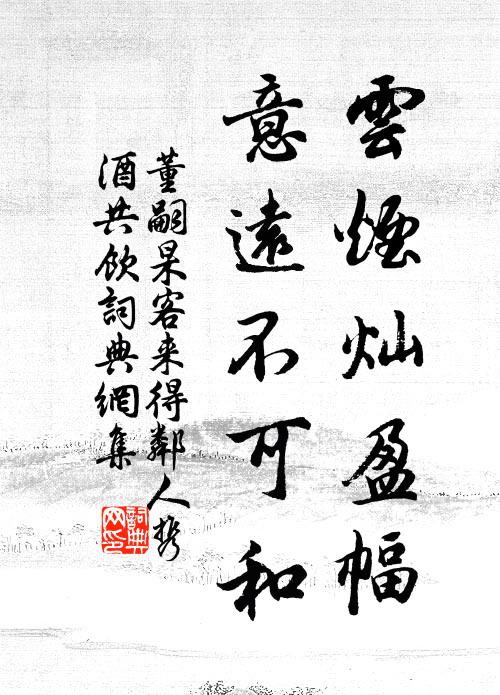 雲煙灿盈幅
意遠不可和
董嗣杲客来得鄰人携
酒共飲詞典網集
詞典
网印